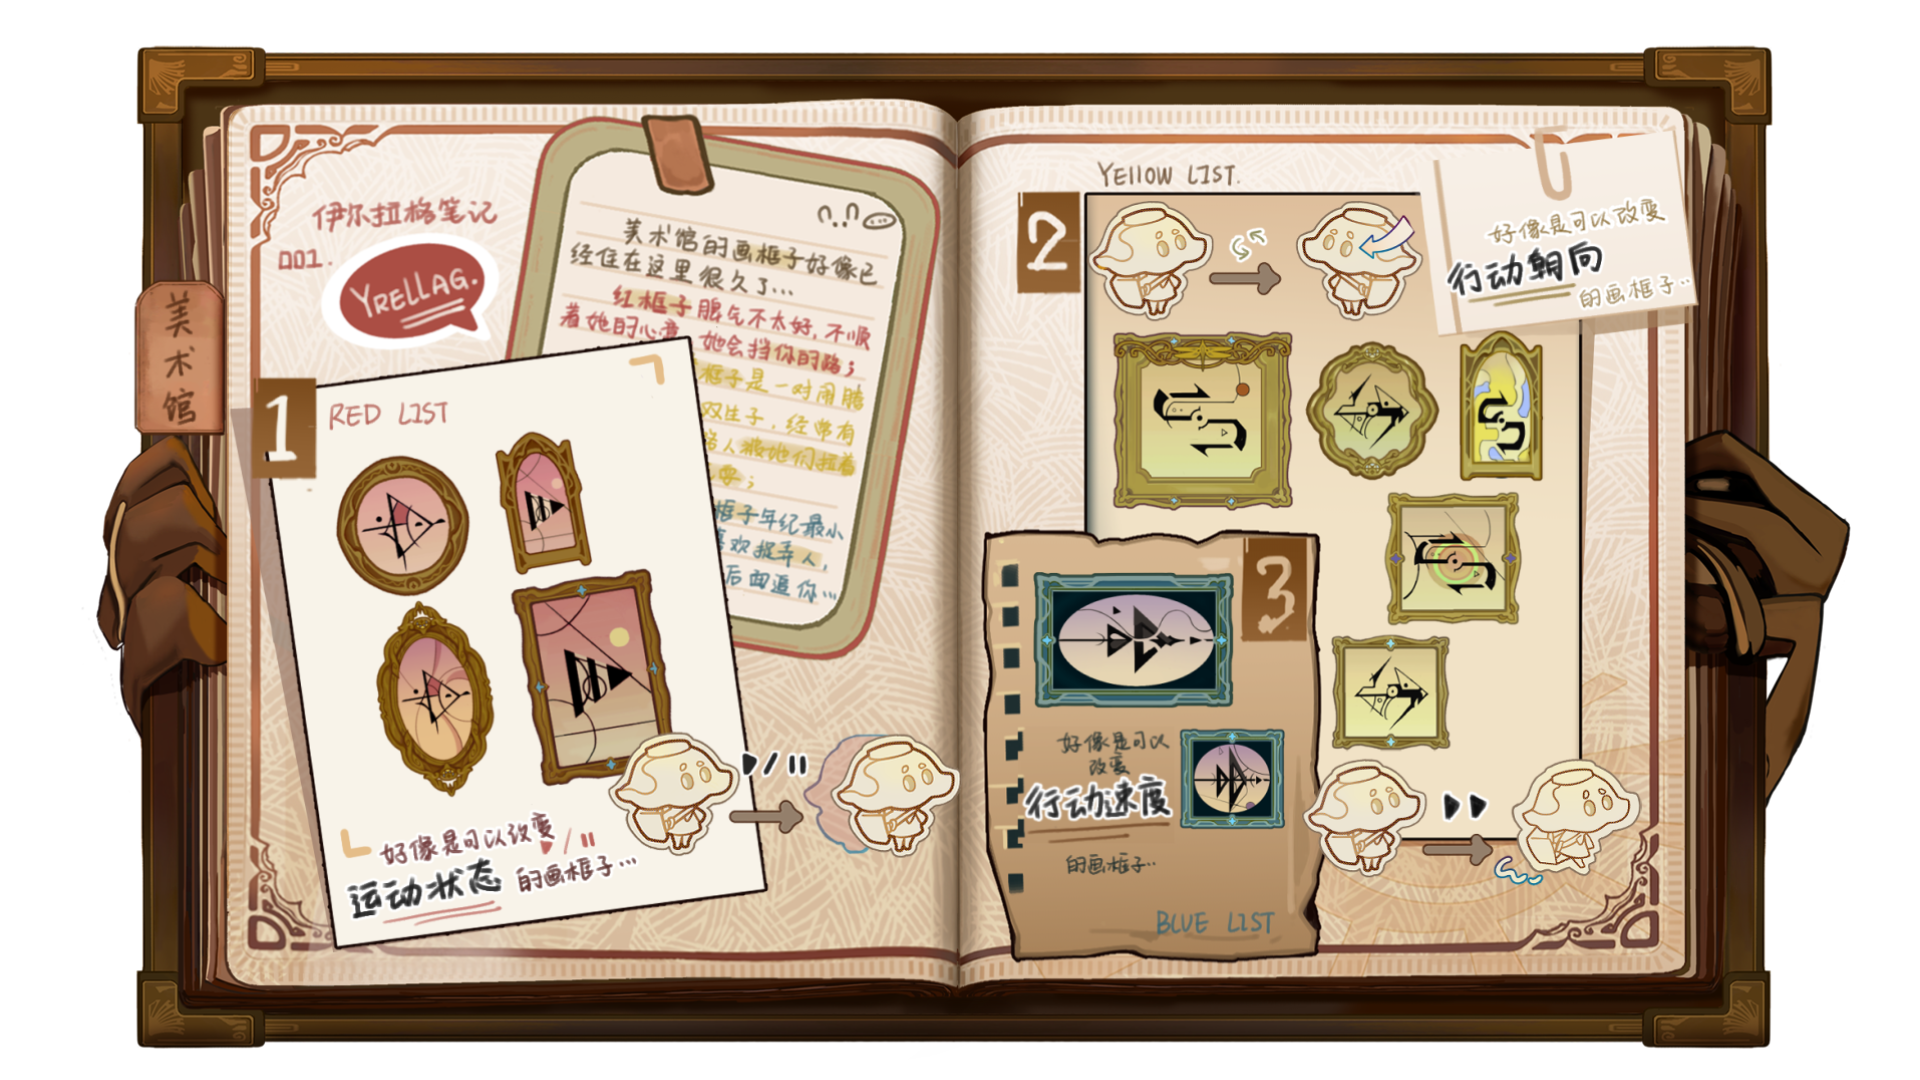 美术馆
伊尔拉格笔记
001.
YRELLAG.
美术馆的画框子好像已
经住在这里很久了...
红框子脾气不太好,不顺
着她的心意,她会挡你的路;
框子是一对闹腾
双生子,经常有
路人被她们扭着
框子年纪最小
喜欢捉弄人,
后面追你...
1
RED LIST
好像是可以改变
运动状态 的画框子...
2
YELLOW LIST.
好像是可以改变
行动朝向
的画框子..
3
好像是可以
改变
行动速度
的画框子..
BLUE LIST